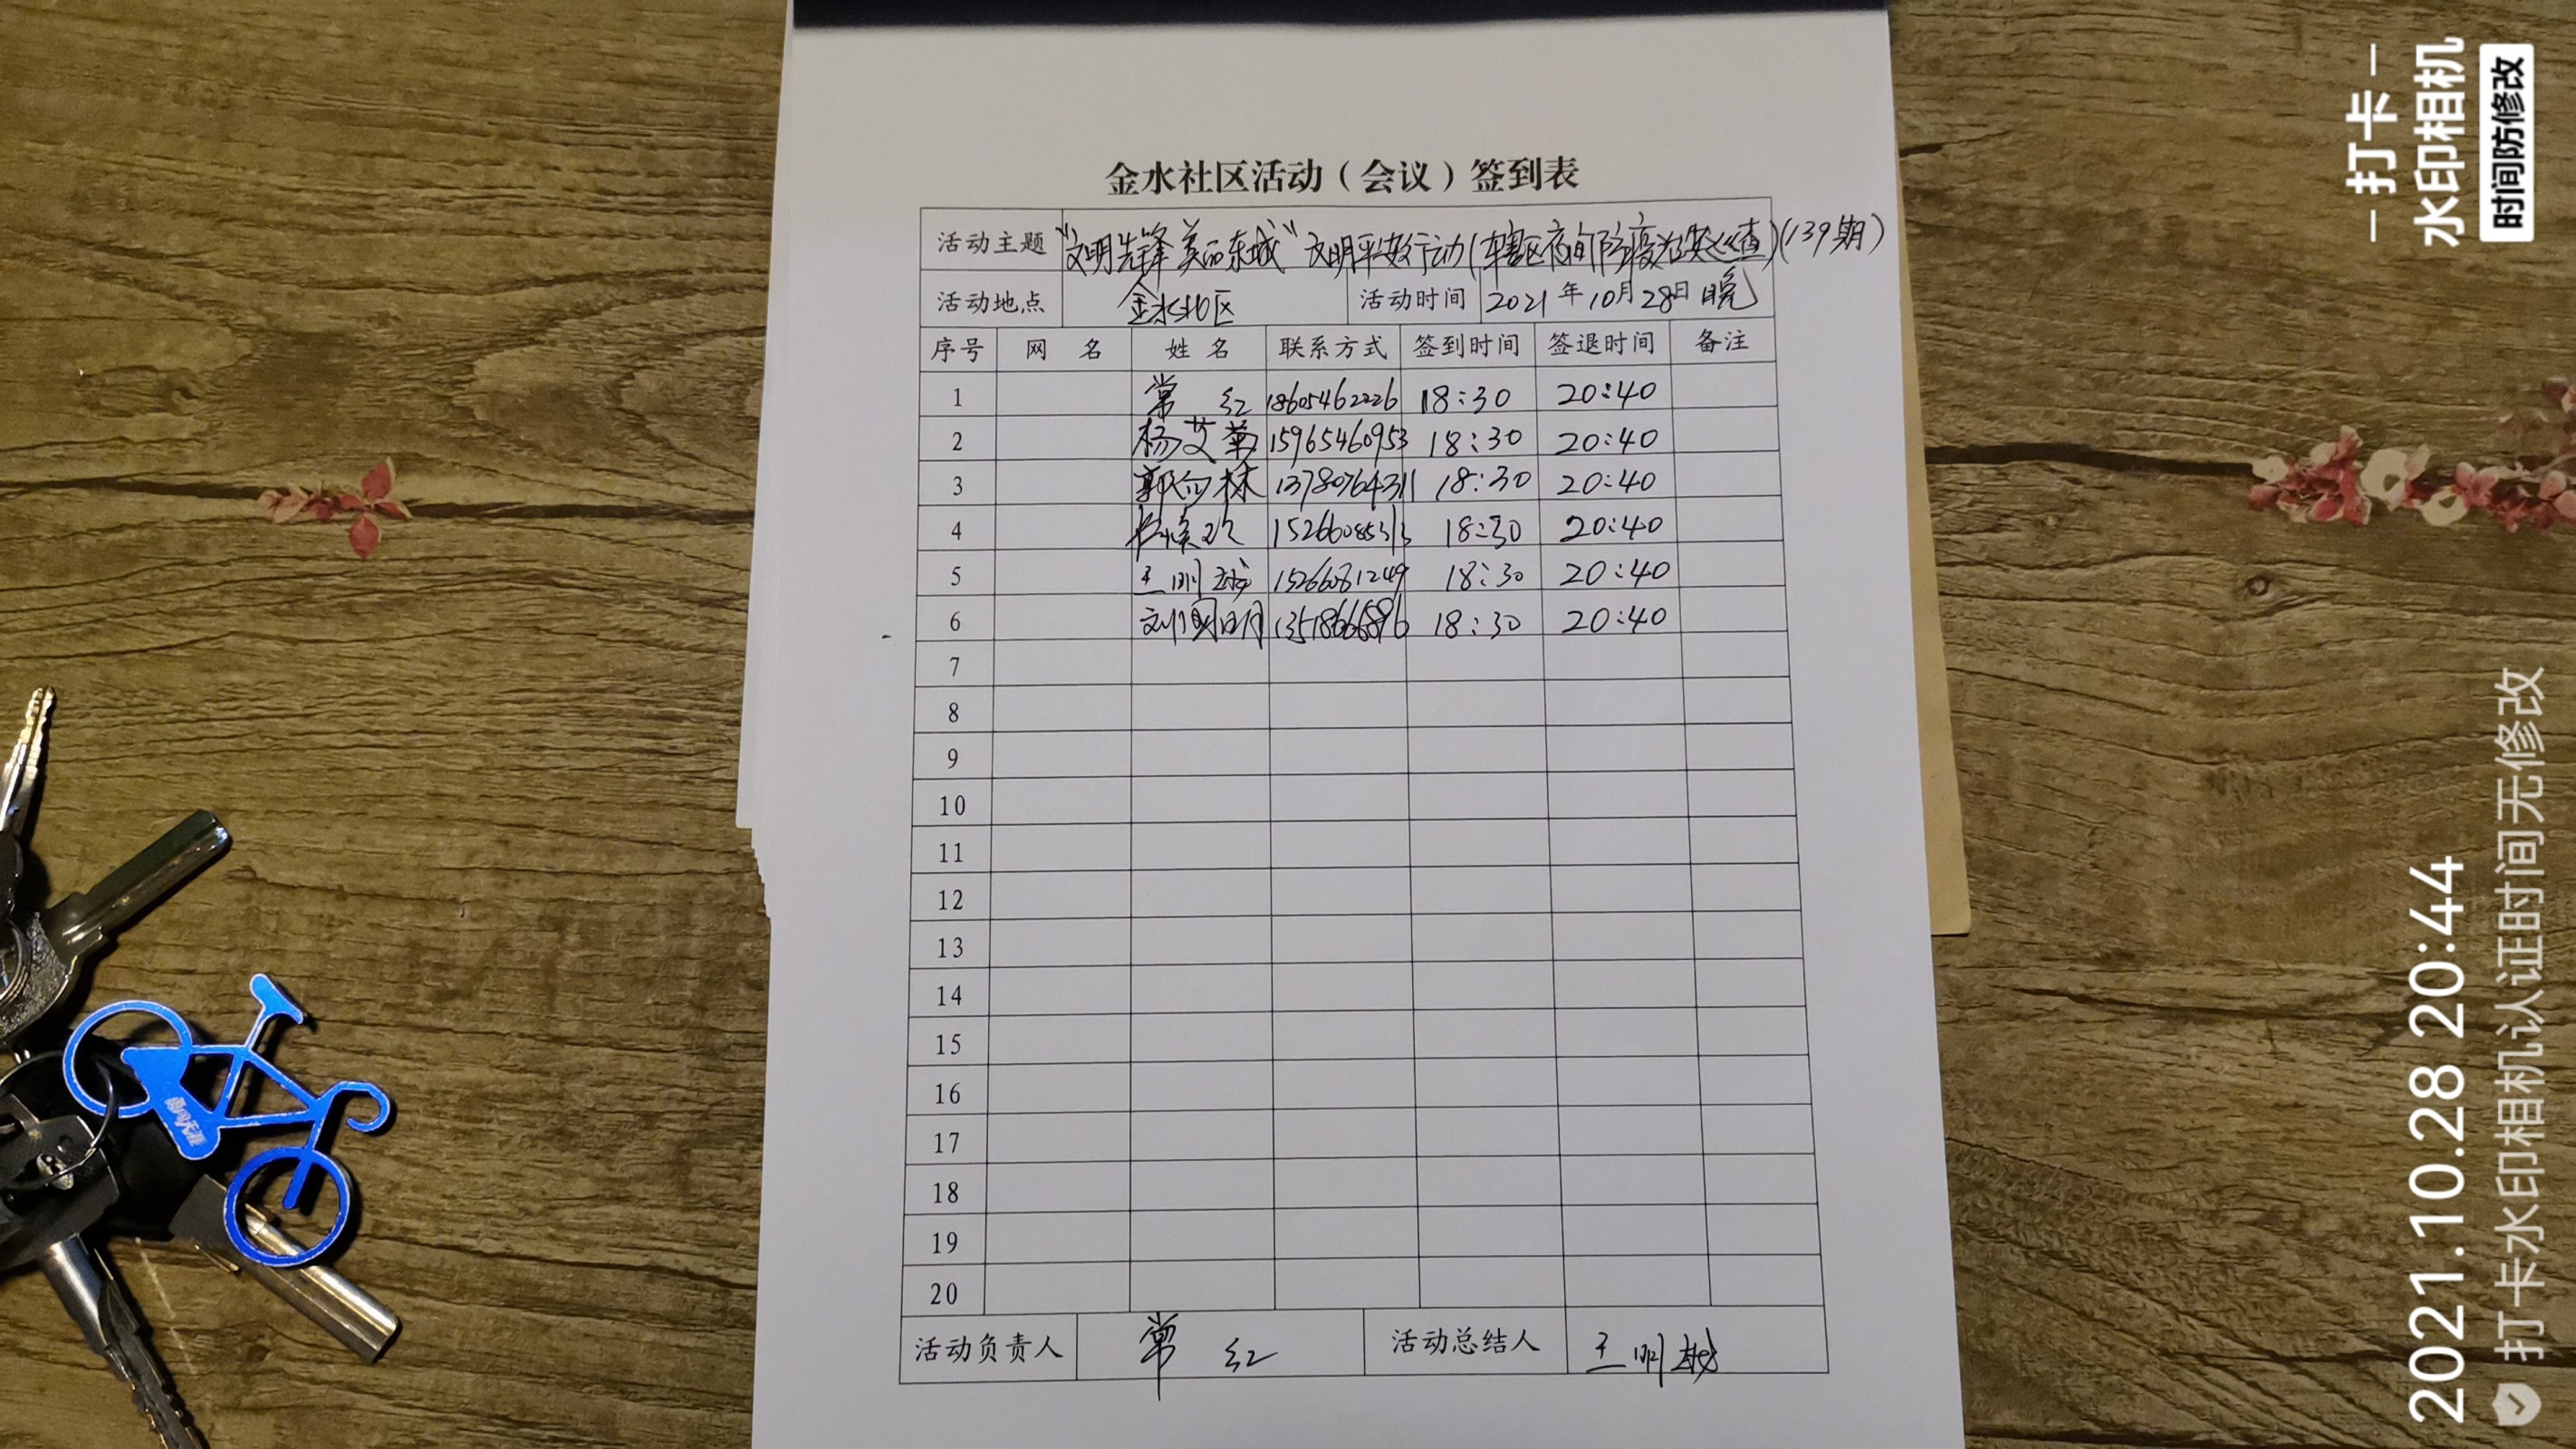 金水社区活动（会议）签到表
活动主题 "文明先锋 美丽东城" 文明平安行动(辖区夜间防疫巡查)(139期)
活动地点 金水北区 活动时间 2021年10月28日晚
序号 网 名 姓 名 联系方式 签到时间 签退时间 备注
1 常 红 18605462226 18:30 20:40
2 杨艾菊 15965460953 18:30 20:40
3 郭 林 13780764311 18:30 20:40
4 15266085313 18:30 20:40
5 王明 15266081249 18:30 20:40
6 刘 18:30 20:40
7
8
9
10
11
12
13
14
15
16
17
18
19
20
活动负责人 常 红 活动总结人 王明
打卡
水印相机
时间防修改
2021.10.28 20:44
打卡水印相机认证时间无修改